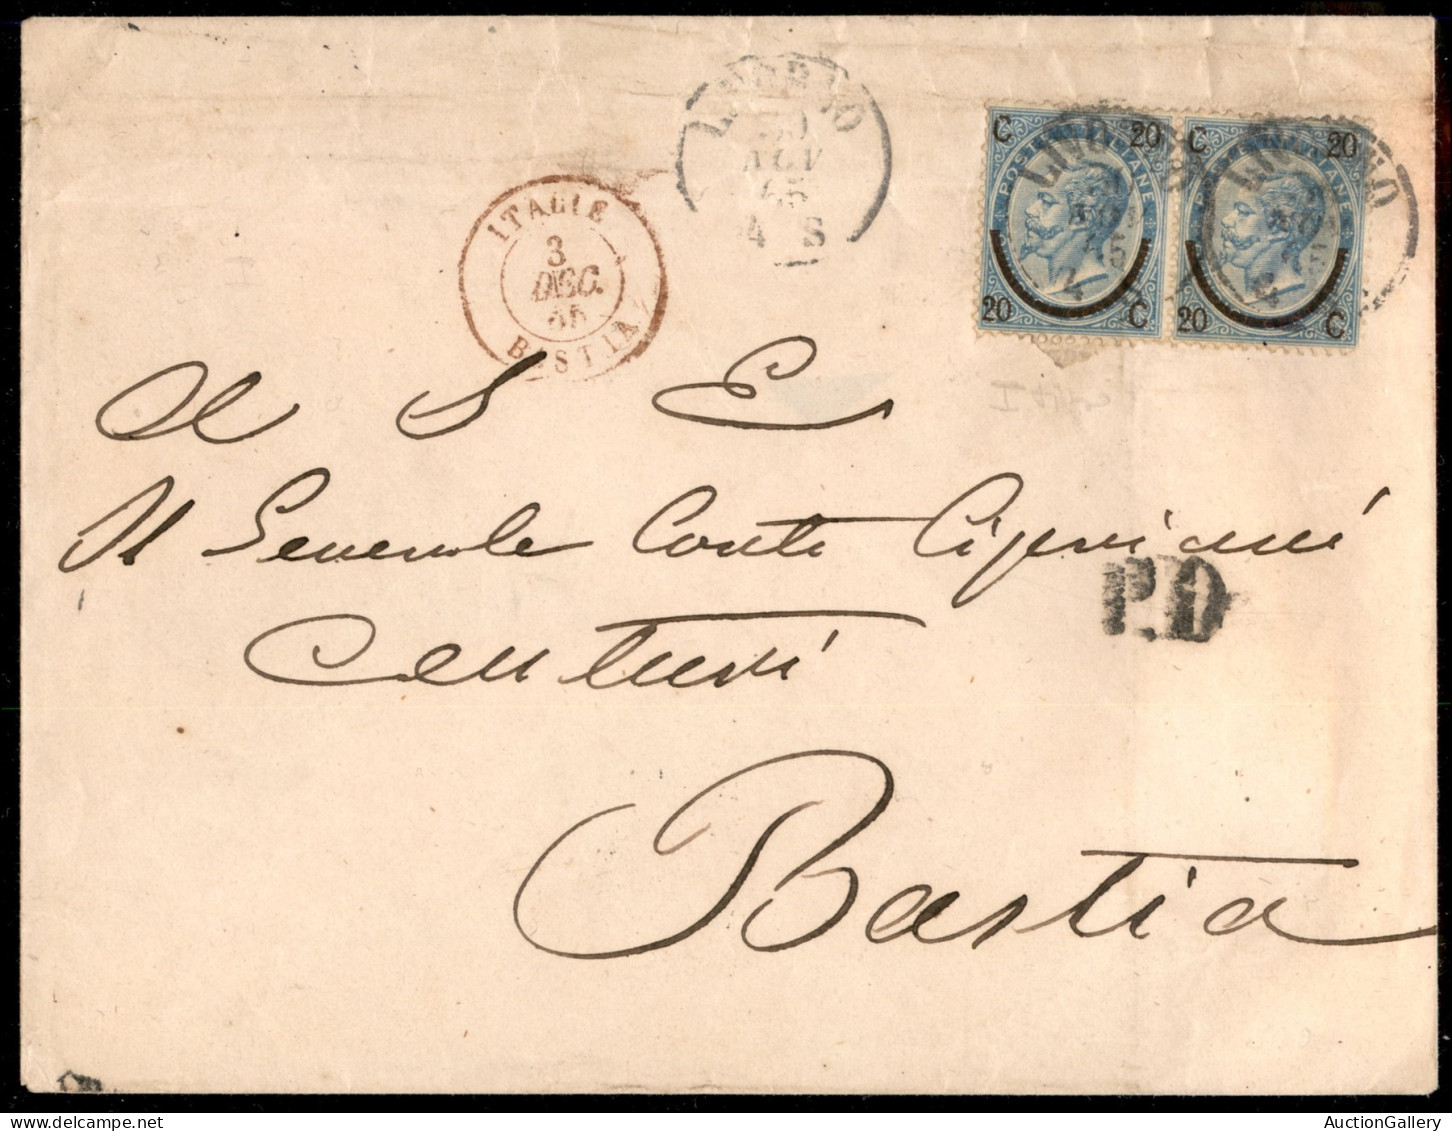 LIVORNO
30
NOV
65
4 S
C 20
POSTE ITALIANE
20 C
C 20
POSTE ITALIANE
20 C
LIVORNO
LIVORNO
ITALIE
3
DEC.
65
BASTIA
A S E
Il Generale Conte Cipriani
P.D
Centuri
Bastia
AuctionGallery